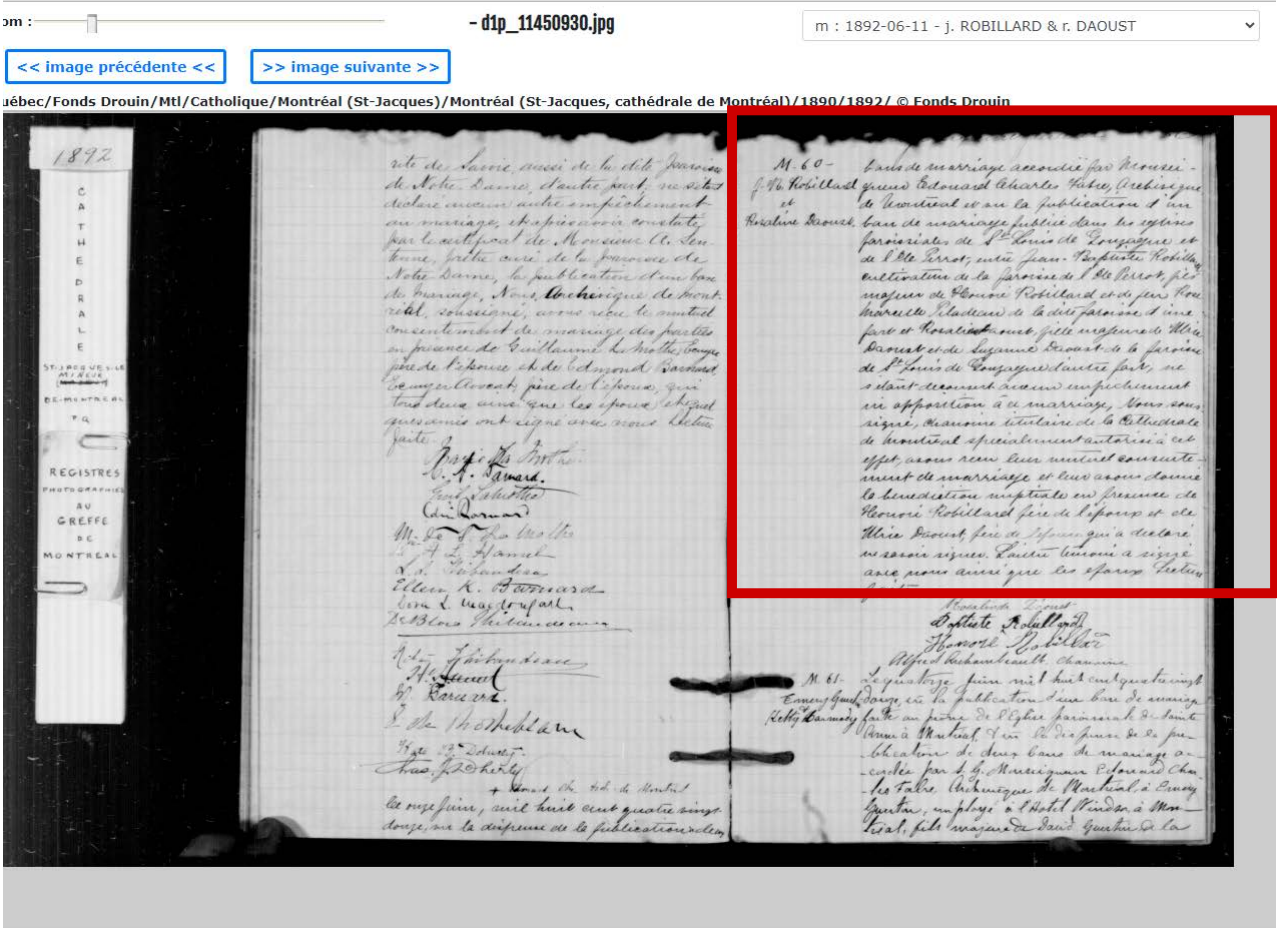 om :
– d1p_11450930.jpg
m : 1892-06-11 - j. ROBILLARD & r. DAOUST
<< image précédente <<
>> image suivante >>
uébec/Fonds Drouin/Mtl/Catholique/Montréal (St-Jacques)/Montréal (St-Jacques, cathédrale de Montréal)/1890/1892/ © Fonds Drouin
1892
CATHEDRALE
ST-JACQUES-LE
MINEUR
DE-MONTREAL
P Q
REGISTRES
PHOTOGRAPHIES
AU
GREFFE
DE
MONTREAL
de Lavoie, aussi de la dite Paroisse
de Notre Dame, d'autre part; ne s'étant
déclaré aucun autre empêchement
au mariage, et après avoir constaté
par le certificat de Monsieur A. Sen-
tenne, prêtre curé de la paroisse de
Notre Dame, la publication d'un ban
de mariage, Nous, Archevêque de Mont-
réal, soussigné, avons reçu le mutuel
consentement de mariage des parties
en présence de Guillaume LaMothe, Ecuyer
père de l'épouse et de Edmond Barnard
Ecuyer Avocat, père de l'époux, qui
tous deux ainsi que les époux et quel
ques amis ont signé avec nous Lecture
faite.
Barnard.
Edm Barnard
A. L. Hamel
L. A. Thibaudeau
Ellen K. Barnard
DeBlois Thibaudeau
Thibaudeau
W. Barnard.
Kate Doherty
Chas. J. Doherty
Le onze juin, mil huit cent quatre vingt
douze, vu la dispense de la publication de deux
M. 60 -
J. Bte Robillard
et
Rosalina Daoust.
bans de marriage accordée par Monsei-
gneur Edouard Charles Fabre, Archevêque
de Montréal et vu la publication d'un
ban de mariage publiée dans les eglises
paroissiales de St Louis de Gonzague et
de l'Ile Perrot; entre Jean-Baptiste Robillard
cultivateur de la paroisse de l'Ile Perrot, fils
majeur de Honoré Robillard et de feu Rose
Marcelle Piladeau de la dite paroisse d'une
part et Rosalie Daoust, fille majeure de Ulric
Daoust et de Suzanne Daoust de la paroisse
de St Louis de Gonzague d'autre part, ne
s'étant decouvert aucun empêchement
ni opposition à ce marriage, Nous sous
signé, chanoine titulaire de la Cathédrale
de Montréal spécialement autorisé à cet
effet, avons reçu leur mutuel consente-
ment de marriage et leur avons donné
la benediction nuptiale en presence de
Honoré Robillard père de l'époux et de
Ulric Daoust, père de l'épouse qui a declaré
ne savoir signer. L'autre temoin a signé
avec nous ainsi que les epoux Lecture
faite
Baptiste Robillard
Honoré Robillard
Alfred Archambeault, chanoine
M. 61 -
Emery Guertin
Ketty Kennedy
Le quatorze juin mil huit cent quatre vingt
douze, vu la publication d'un ban de mariage
faite au prône de l'Eglise paroissiale de Sainte
Anne à Montréal, & vu la dispense de la pu-
blication de deux bans de mariage ac-
cordée par S. G. Monseigneur Edouard Char-
les Fabre, Archevêque de Montréal, à Emery
Guertin, employé à l'Hotel Windsor, à Mon-
tréal, fils majeur de David Guertin de la